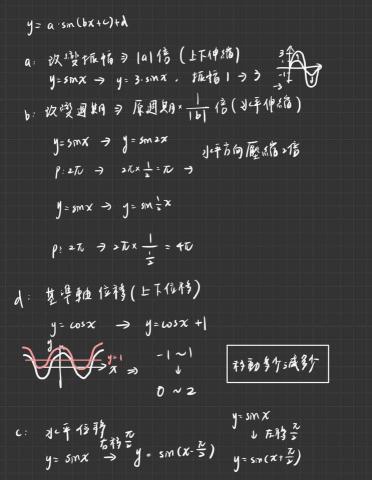 y = a·sin(bx+c)+d
a: 改變振幅 ⇒ |a|倍 (上下伸縮)
y=sinx → y=3·sinx, 振幅 1 → 3
3
1
-1
-3
b: 改變週期 ⇒ 原週期×1/|b| 倍 (水平伸縮)
y=sinx → y=sin2x
水平方向壓縮2倍
P: 2π → 2π×1/2=π →
y=sinx → y=sin1/2x
P: 2π → 2π×1/(1/2) = 4π
d: 基準軸位移 (上下位移)
y=cosx → y=cosx+1
y
y=1
x ⇒
-1 ~ 1
↓
0 ~ 2
移動多少減多少
c: 水平位移
右移π/2
y=sinx → y=sin(x-π/2)
y=sinx
↓ 左移π/2
y=sin(x+π/2)